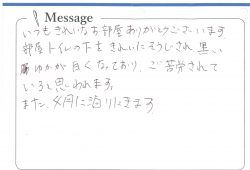 Message
いつもきれいなお部屋ありがとうございます。
部屋トイレの下もきれいにそうじされ 黒い
ゆかが白くなっており、ご苦労されて
いると思われます。
また、4月に泊りにきます